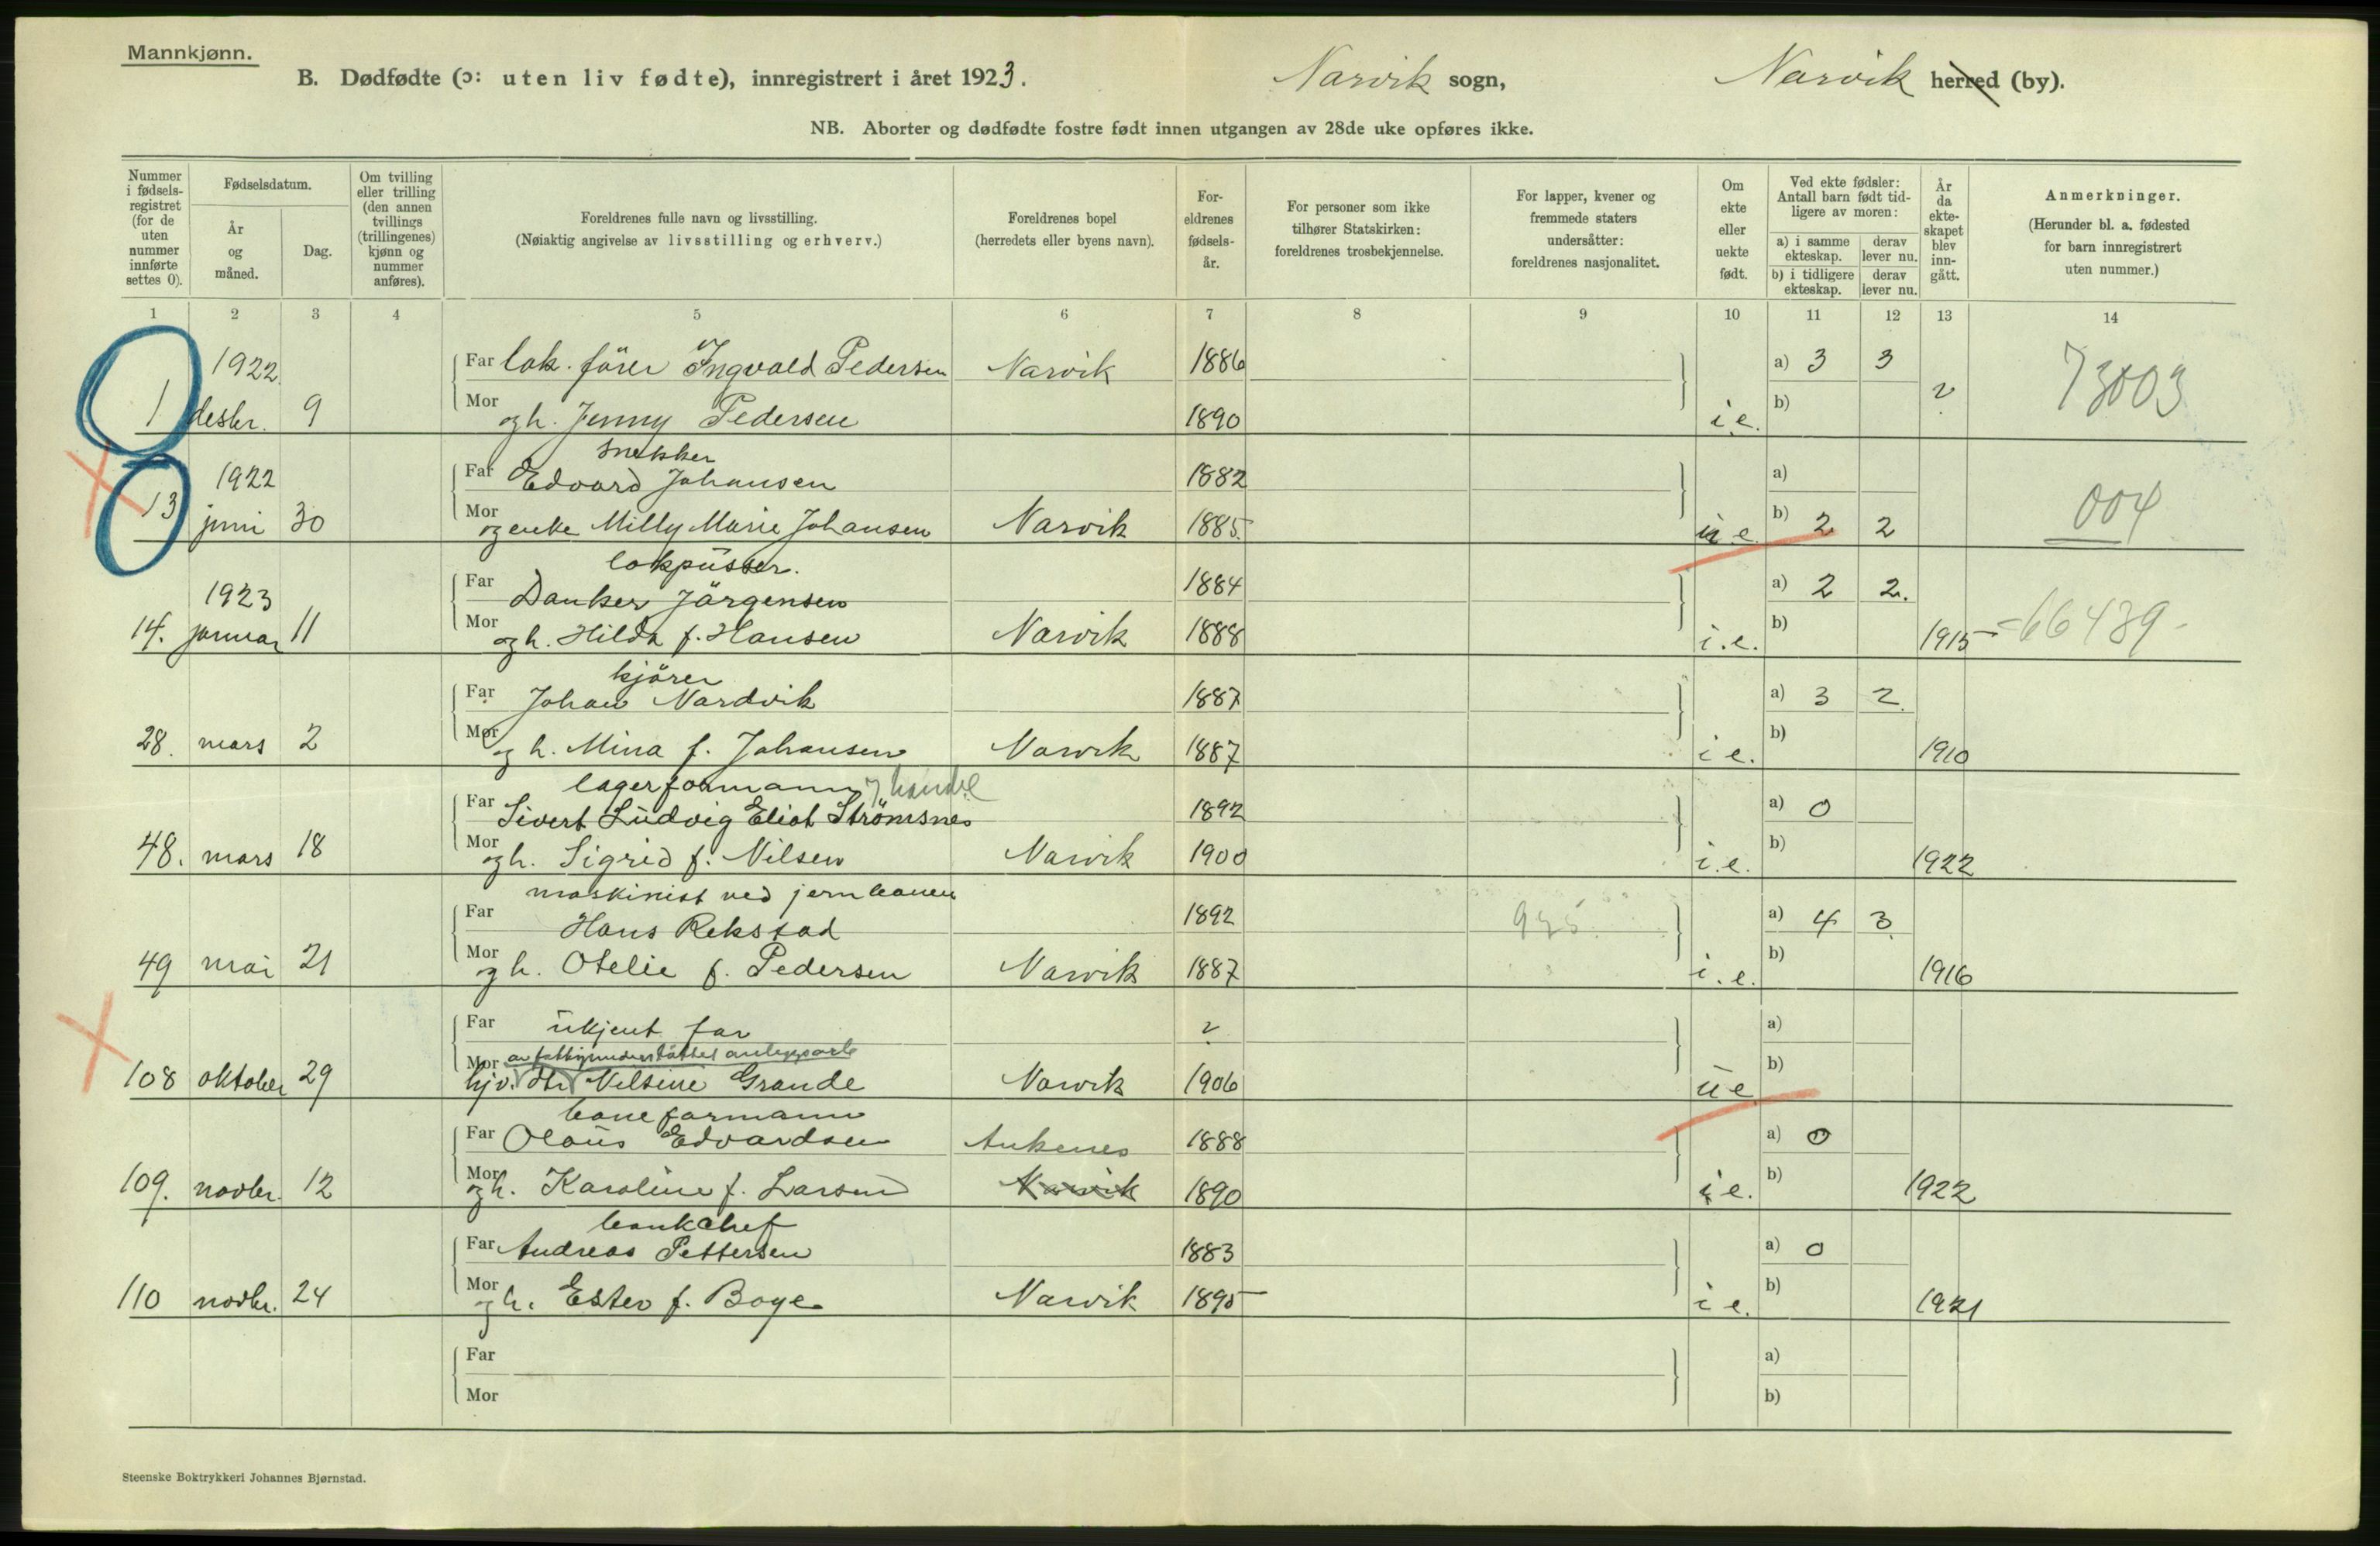 Mannkjønn.
B. Dødfødte (ɔ: uten liv fødte), innregistrert i året 1923. Narvik sogn, Narvik herred (by).
NB. Aborter og dødfødte fostre født innen utgangen av 28de uke opføres ikke.
Nummer i fødsels-registret (for de uten nummer innførte settes 0).
Fødselsdatum.
År og måned.
Dag.
Om tvilling eller trilling (den annen tvillings (trillingenes) kjønn og nummer anføres).
Foreldrenes fulle navn og livsstilling.
(Nøiaktig angivelse av livsstilling og erhverv.)
Foreldrenes bopel
(herredets eller byens navn).
For-eldrenes fødsels-år.
For personer som ikke tilhører Statskirken: foreldrenes trosbekjennelse.
For lapper, kvener og fremmede staters undersåtter: foreldrenes nasjonalitet.
Om ekte eller uekte født.
Ved ekte fødsler: Antall barn født tid-ligere av moren:
a) i samme ekteskap. derav lever nu.
b) i tidligere ekteskap. derav lever nu.
År da ekte-skapet blev inn-gått.
Anmerkninger.
(Herunder bl. a. fødested for barn innregistrert uten nummer.)
1 2 3 4 5 6 7 8 9 10 11 12 13 14
1922 Far lok. förer Ingvald Pedersen Narvik 1886 a) 3 3 73003
1 desbr. 9 Mor og h. Jenny Pedersen 1890 i.e. b) ?
snekker
1922 Far Edvard Johansen 1882 a) 004
13 juni 30 Mor og enke Milly Marie Johansen Narvik 1885 u.e. b) 2 2
lokpüsser.
1923 Far Danker Jörgensen 1884 a) 2 2.
14. januar 11 Mor og h. Hilda f. Hansen Narvik 1888 i.e. b) 1915 66439
kjörer
Far Johan Nordvik 1887 a) 3 2
28. mars 2 Mor og h. Mina f. Johansen Narvik 1887 i e. b) 1910
lagerformann handel
Far Sivert Lüdvig Eliot Strömsnes 1892 a) 0
48. mars 18 Mor og h. Sigrid f. Nilsen Narvik 1900 i.e. b) 1922
maskinist ved jernbanen
Far Hans Rekstad 1892 a) 4 3
49 mai 21 Mor og h. Otelie f. Pedersen Narvik 1887 i.e. b) 1916
Far ükjent far ? a)
av fattigunderstöttet anleggsarb
108 oktober 29 Mor hjv. dtr Nilsine Grande Narvik 1906 ü e b)
baneformann
Far Olaüs Edvardsen Ankenes 1888 a) 0
109. novbr. 12 Mor og h. Karoline f. Larsen Narvik 1890 i e. b) 1922
bankchef
Far Andreas Pettersen 1883 a) 0
110 novbr. 24 Mor og h. Ester f. Boye Narvik 1895 i e. b) 1921
Far a)
Mor b)
Steenske Boktrykkeri Johannes Bjørnstad.